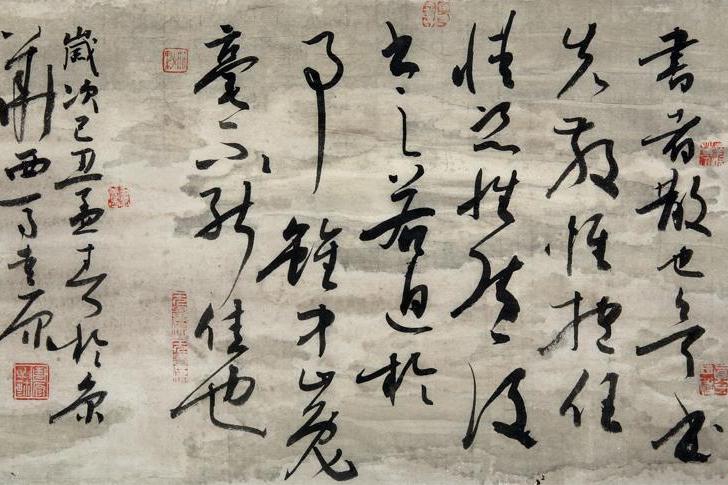 書者散也欲書
先散懷抱任
情恣性然後
書之若迫於
事雖中山兔
毫不能佳也
歲次己丑孟春於京
華西